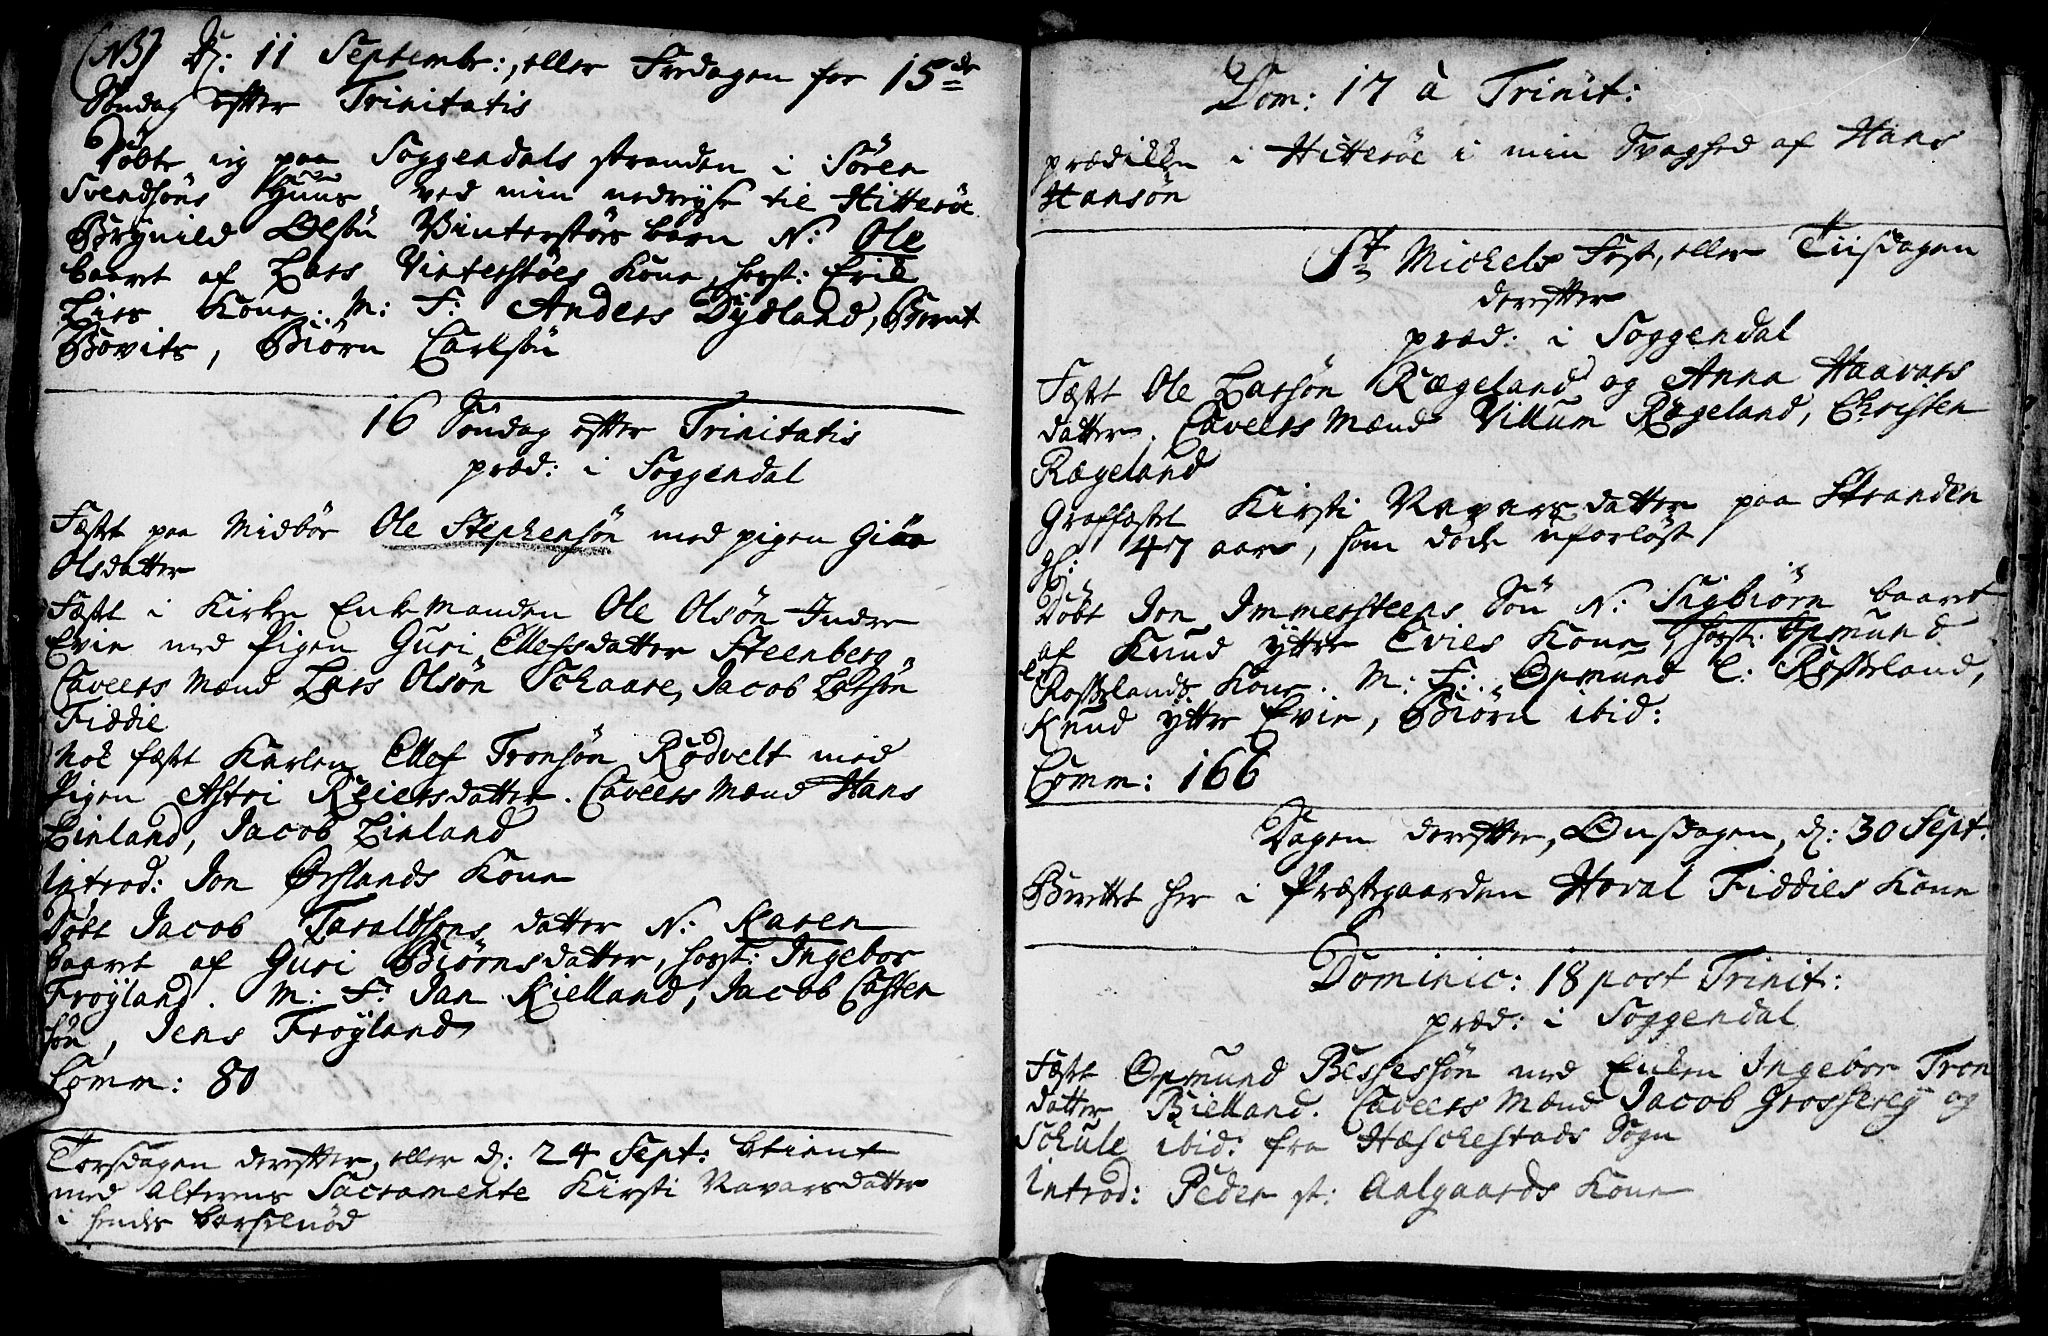 (NB) D: 11 Septembr:, eller Fredagen for 15de
Søndag efter Trinitatis
Døbte jeg paa Soggendals stranden i Sören
Svendsöns Huus ved min nedreyse til Hitteröe
Brynild Olsön Vinterstöes barn N: Ole
baaret af Lars Vinterstöes Kone, forst: Erik
Lies Kone. M: F: Anders Dydland, Bernt
Bovits, Biörn Carlsön
16 Söndag efter Trinitatis
præd: i Soggendal
Fæstet paa Midbör Ole Stephensön med pigen Giör
Olsdatter
Fæstet i Kirken Enkemanden Ole Olsön Indre
Evie med Pigen Guri Ellefsdatter Steenberg,
Caveers Mænd Lars Olsön Schaare, Jacob Larsön
Fiddie
Nok fæstet Karlen Ellef Tronsön Rödvelt med
Pigen Astri Reiersdatter. Caveers Mænd Hans
Linland, Jacob Linland
Introd: Jon Örslands Kone
Döbt Jacob Taraldsöns datter N: Karen
baaret af Guri Biörnsdatter, forst: Ingebor
Fröyland. M: F: Jan Kielland, Jacob Casten
sön, Jens Fröyland
Comm: 80
Torsdagen derefter, eller d: 24 Sept: betient
med Alterens Sacramente Kirsti Ravarsdatter
i hendes barselnöd
Dom: 17 à Trinit:
prædikken i Hitteröe i min Svaghed af Hans
Hansön
St Michels Fest, eller Tiisdagen
derefter
præd: i Soggendal
Fæstet Ole Larsön Rægeland og Anna Haavars
datter. Caveers Mænd Villum Rægeland, Christen
Rægeland
Graffæstet Kirsti Ravarsdatter paa Stranden
gl: 47 aar, som döde uforlöst
Döbt Jon Immersteens Sön N: Sigbiörn baaret
af Knud yttre Evies Kone, forst: Opmund
Rosslands Kone. M: F: Opmund C: Rossland,
Knud yttre Evie, Biörn ibid:
Comm: 166
Dagen derefter, Onsdagen, d: 30 Sept:
Berettet her i Præstegaarden Hoval Fiddies Kone
Dominic: 18 post Trinit:
præd: i Soggendal
Fæstet Opmund Bessessön med Enken Ingebor Tron
datter Bielland. Caveers Mænd Jacob Grosserey og
Schule ibid: fra Hæschestads Sogn
Introd: Peder st: Aalgaards Kone